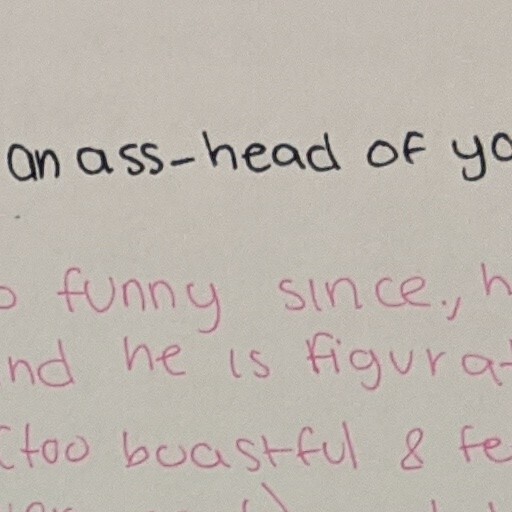 an ass-head of yo
funny since, h
nd he is figurat
(too boastful & fe